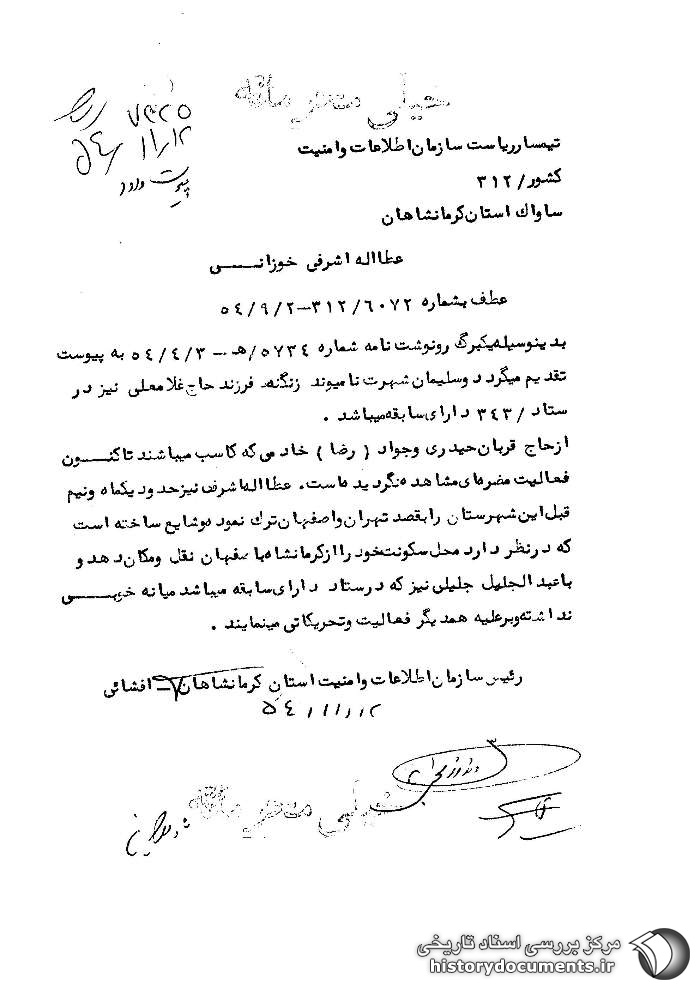 خیلی محرمانه
۷۴۲۵
۵٤/۱۱/۱۲
پیوست دارد
تیمسار ریاست سازمان اطلاعات و امنیت
کشور / ۳۱۲
ساواك استان کرمانشاهان
عطااله اشرفی خوزانـــی
عطف بشماره ۶۰۷۲/۳۱۲-۵٤/۹/۲
بدینوسیله یکبرگ رونوشت نامه شماره ۵۷۳٤/هـ -۵٤/٤/۳ به پیوست
تقدیم میگردد وسلیمان شهرت نامیوند زنگنه فرزند حاج غلامعلی نیز در
ستاد /۳٤۳ دارای سابقه میباشد .
ازحاج قربان حیدری وجواد ( رضا ) خادمی که کاسب میباشند تاکنـــون
فعالیت مضره‌ای مشاهده نگردیده است. عطااله اشرفی نیز حدود یکماه ونیم
قبل این شهرستان را بقصد تهران واصفهان ترك نموده وشایع ساخته است
که درنظر دارد محل سکونت خود را از کرمانشاه باصفهان نقل ومکان دهد و
با عبدالجلیل جلیلی نیز که در ستاد دارای سابقه میباشد میانه خوبـــی
نداشته وبرعلیه همدیگر فعالیت وتحریکاتی مینمایند .
رئیس سازمان اطلاعات وامنیت استان کرمانشاهان – افشائی
۵٤/۱۱/۱۲
خیلی محرمانه
مرکز بررسی اسناد تاریخی
historydocuments.ir